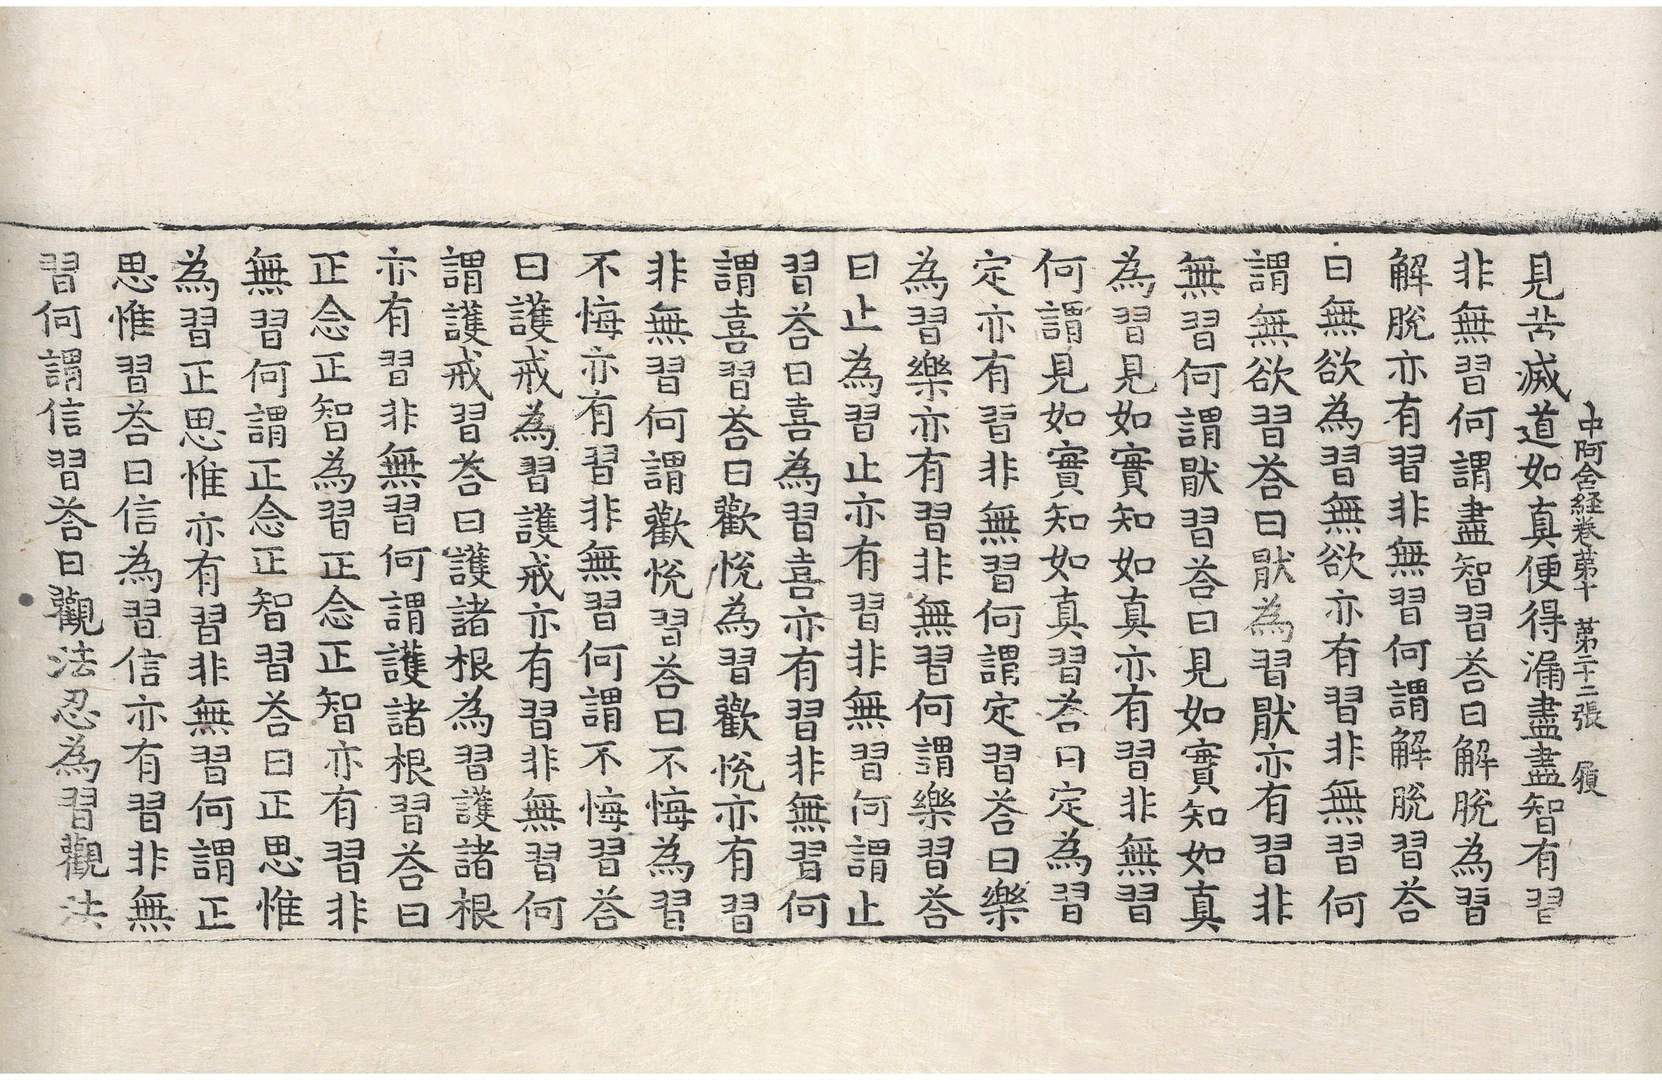 中阿含経卷苐十　苐二十二張　履
見苦滅道如真便得漏盡盡智有習
非無習何謂盡智習荅曰解脫為習
解脫亦有習非無習何謂解脫習荅
曰無欲為習無欲亦有習非無習何
謂無欲習荅曰猒為習猒亦有習非
無習何謂猒習荅曰見如實知如真
為習見如實知如真亦有習非無習
何謂見如實知如真習荅曰定為習
定亦有習非無習何謂定習荅曰樂
為習樂亦有習非無習何謂樂習荅
曰止為習止亦有習非無習何謂止
習荅曰喜為習喜亦有習非無習何
謂喜習荅曰歡悅為習歡悅亦有習
非無習何謂歡悅習荅曰不悔為習
不悔亦有習非無習何謂不悔習荅
曰護戒為習護戒亦有習非無習何
謂護戒習荅曰護諸根為習護諸根
亦有習非無習何謂護諸根習荅曰
正念正智為習正念正智亦有習非
無習何謂正念正智習荅曰正思惟
為習正思惟亦有習非無習何謂正
思惟習荅曰信為習信亦有習非無
習何謂信習荅曰觀法忍為習觀法